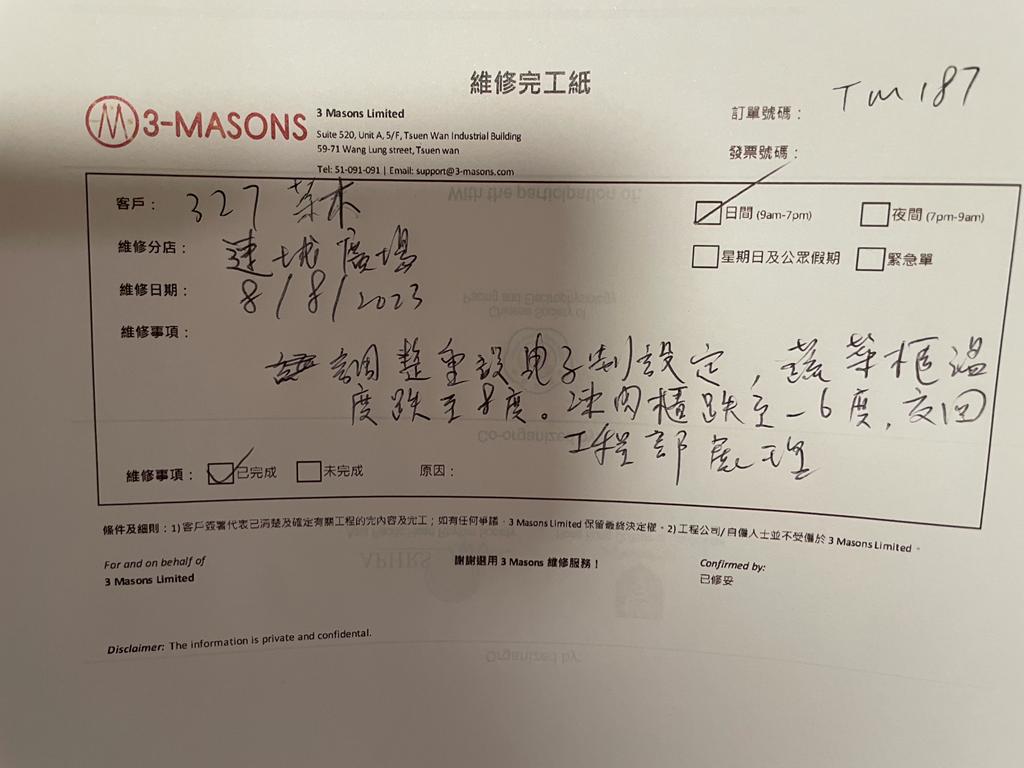 維修完工紙
3-MASONS
3 Masons Limited
Suite 520, Unit A, 5/F, Tsuen Wan Industrial Building
59-71 Wang Lung street, Tsuen wan
Tel: 51-091-091 | Email: support@3-masons.com
訂單號碼： TM 187
發票號碼：
客戶： 327
維修分店： 連城廣場
維修日期： 8/8/2023
日間 (9am-7pm)
夜間 (7pm-9am)
星期日及公眾假期
緊急單
維修事項：
調整重設电子制設定，蔬菜柜溫
度跌至8度。冻肉櫃跌至-6度，交回
工程部處理
維修事項： 已完成 未完成 原因：
條件及細則：1) 客戶簽署代表已清楚及確定有關工程的完內容及完工；如有任何爭議，3 Masons Limited 保留最終決定權。2) 工程公司/ 自僱人士並不受僱於 3 Masons Limited。
For and on behalf of
3 Masons Limited
謝謝選用 3 Masons 維修服務！
Confirmed by:
已修妥
Disclaimer: The information is private and confidental.
With the participation of:
Pacing and Electrophysiology
Chinese Society of
Co-organize
APHRS
Organized by: